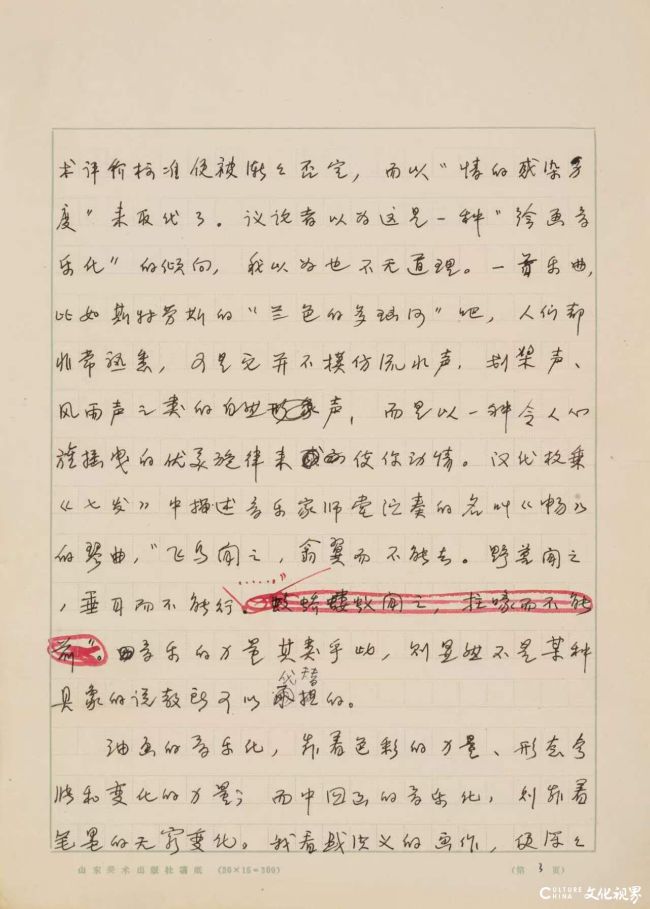 术评价标准便被渐々否定，而以“情的感染力
度”来取代了。议论者以为这是一种“绘画音
乐化”的倾向，我以为也不无道理。一首乐曲，
比如斯特劳斯的“兰色的多瑙河”吧，人们都
非常熟悉，可是它并不模仿流水声、划桨声、
风雨声之类的自然声，而是以一种令人心
旌摇曳的优美旋律来使你动情。汉代枚乘
《七发》中描述音乐家师堂演奏的名叫《畅》
的琴曲，“飞鸟闻之，翕翼而不能去。野兽闻之
……”
，垂耳而不能行。蚑蟜蝼蚁闻之，拄喙而不能
前”。音乐的力量其类乎此，则显然不是某种
代替
具象的说教所可以的。
油画的音乐化，靠着色彩的力量、形态夸
张和变化的力量；而中国画的音乐化，则靠着
笔墨的无穷变化。我看的画作，便深々
山东美术出版社稿纸 (20×15=300) (第 3 页)
CULTURE CHINA 文化视界